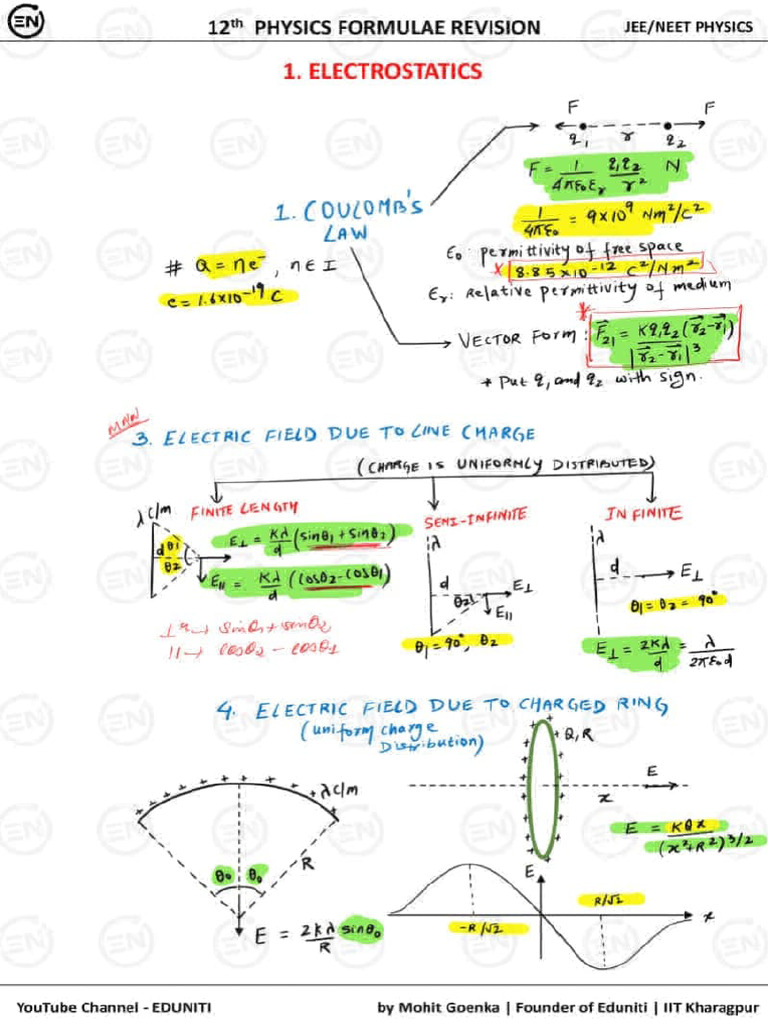 EN
12th PHYSICS FORMULAE REVISION
JEE/NEET PHYSICS
1. ELECTROSTATICS
F F
q1 r q2
F = 1/4πε0εr q1q2/r² N
1/4πε0 = 9×10⁹ Nm²/C²
1. COULOMB'S
LAW
# Q = ne⁻, n ∈ I
e = 1.6×10⁻¹⁹ C
ε0: permittivity of free space
* 8.85×10⁻¹² C²/Nm²
εr: Relative permittivity of medium
* VECTOR Form: F⃗21 = Kq1q2(r⃗2-r⃗1)/|r⃗2-r⃗1|³
* Put q1 and q2 with sign.
3. ELECTRIC FIELD DUE TO LINE CHARGE
(CHARGE IS UNIFORMLY DISTRIBUTED)
FINITE LENGTH
λ c/m
d θ1
θ2
E⊥ = Kλ/d (sinθ1+sinθ2)
E|| = Kλ/d (cosθ2-cosθ1)
⊥r → sinθ1+sinθ2
|| → cosθ2 - cosθ1
SEMI-INFINITE
λ
d
θ2
E⊥
E||
θ1=90°, θ2
INFINITE
λ
d
E⊥
θ1 = θ2 = 90°
E⊥ = 2Kλ/d = λ/2πε0d
4. ELECTRIC FIELD DUE TO CHARGED RING
(uniform charge
Distribution)
+ + + + + + + λ c/m
R
θ0 θ0
E = 2Kλ/R sinθ0
Q, R
E
x
E = KQx/(x²+R²)^3/2
E
R/√2
-R/√2
x
YouTube Channel - EDUNITI
by Mohit Goenka | Founder of Eduniti | IIT Kharagpur